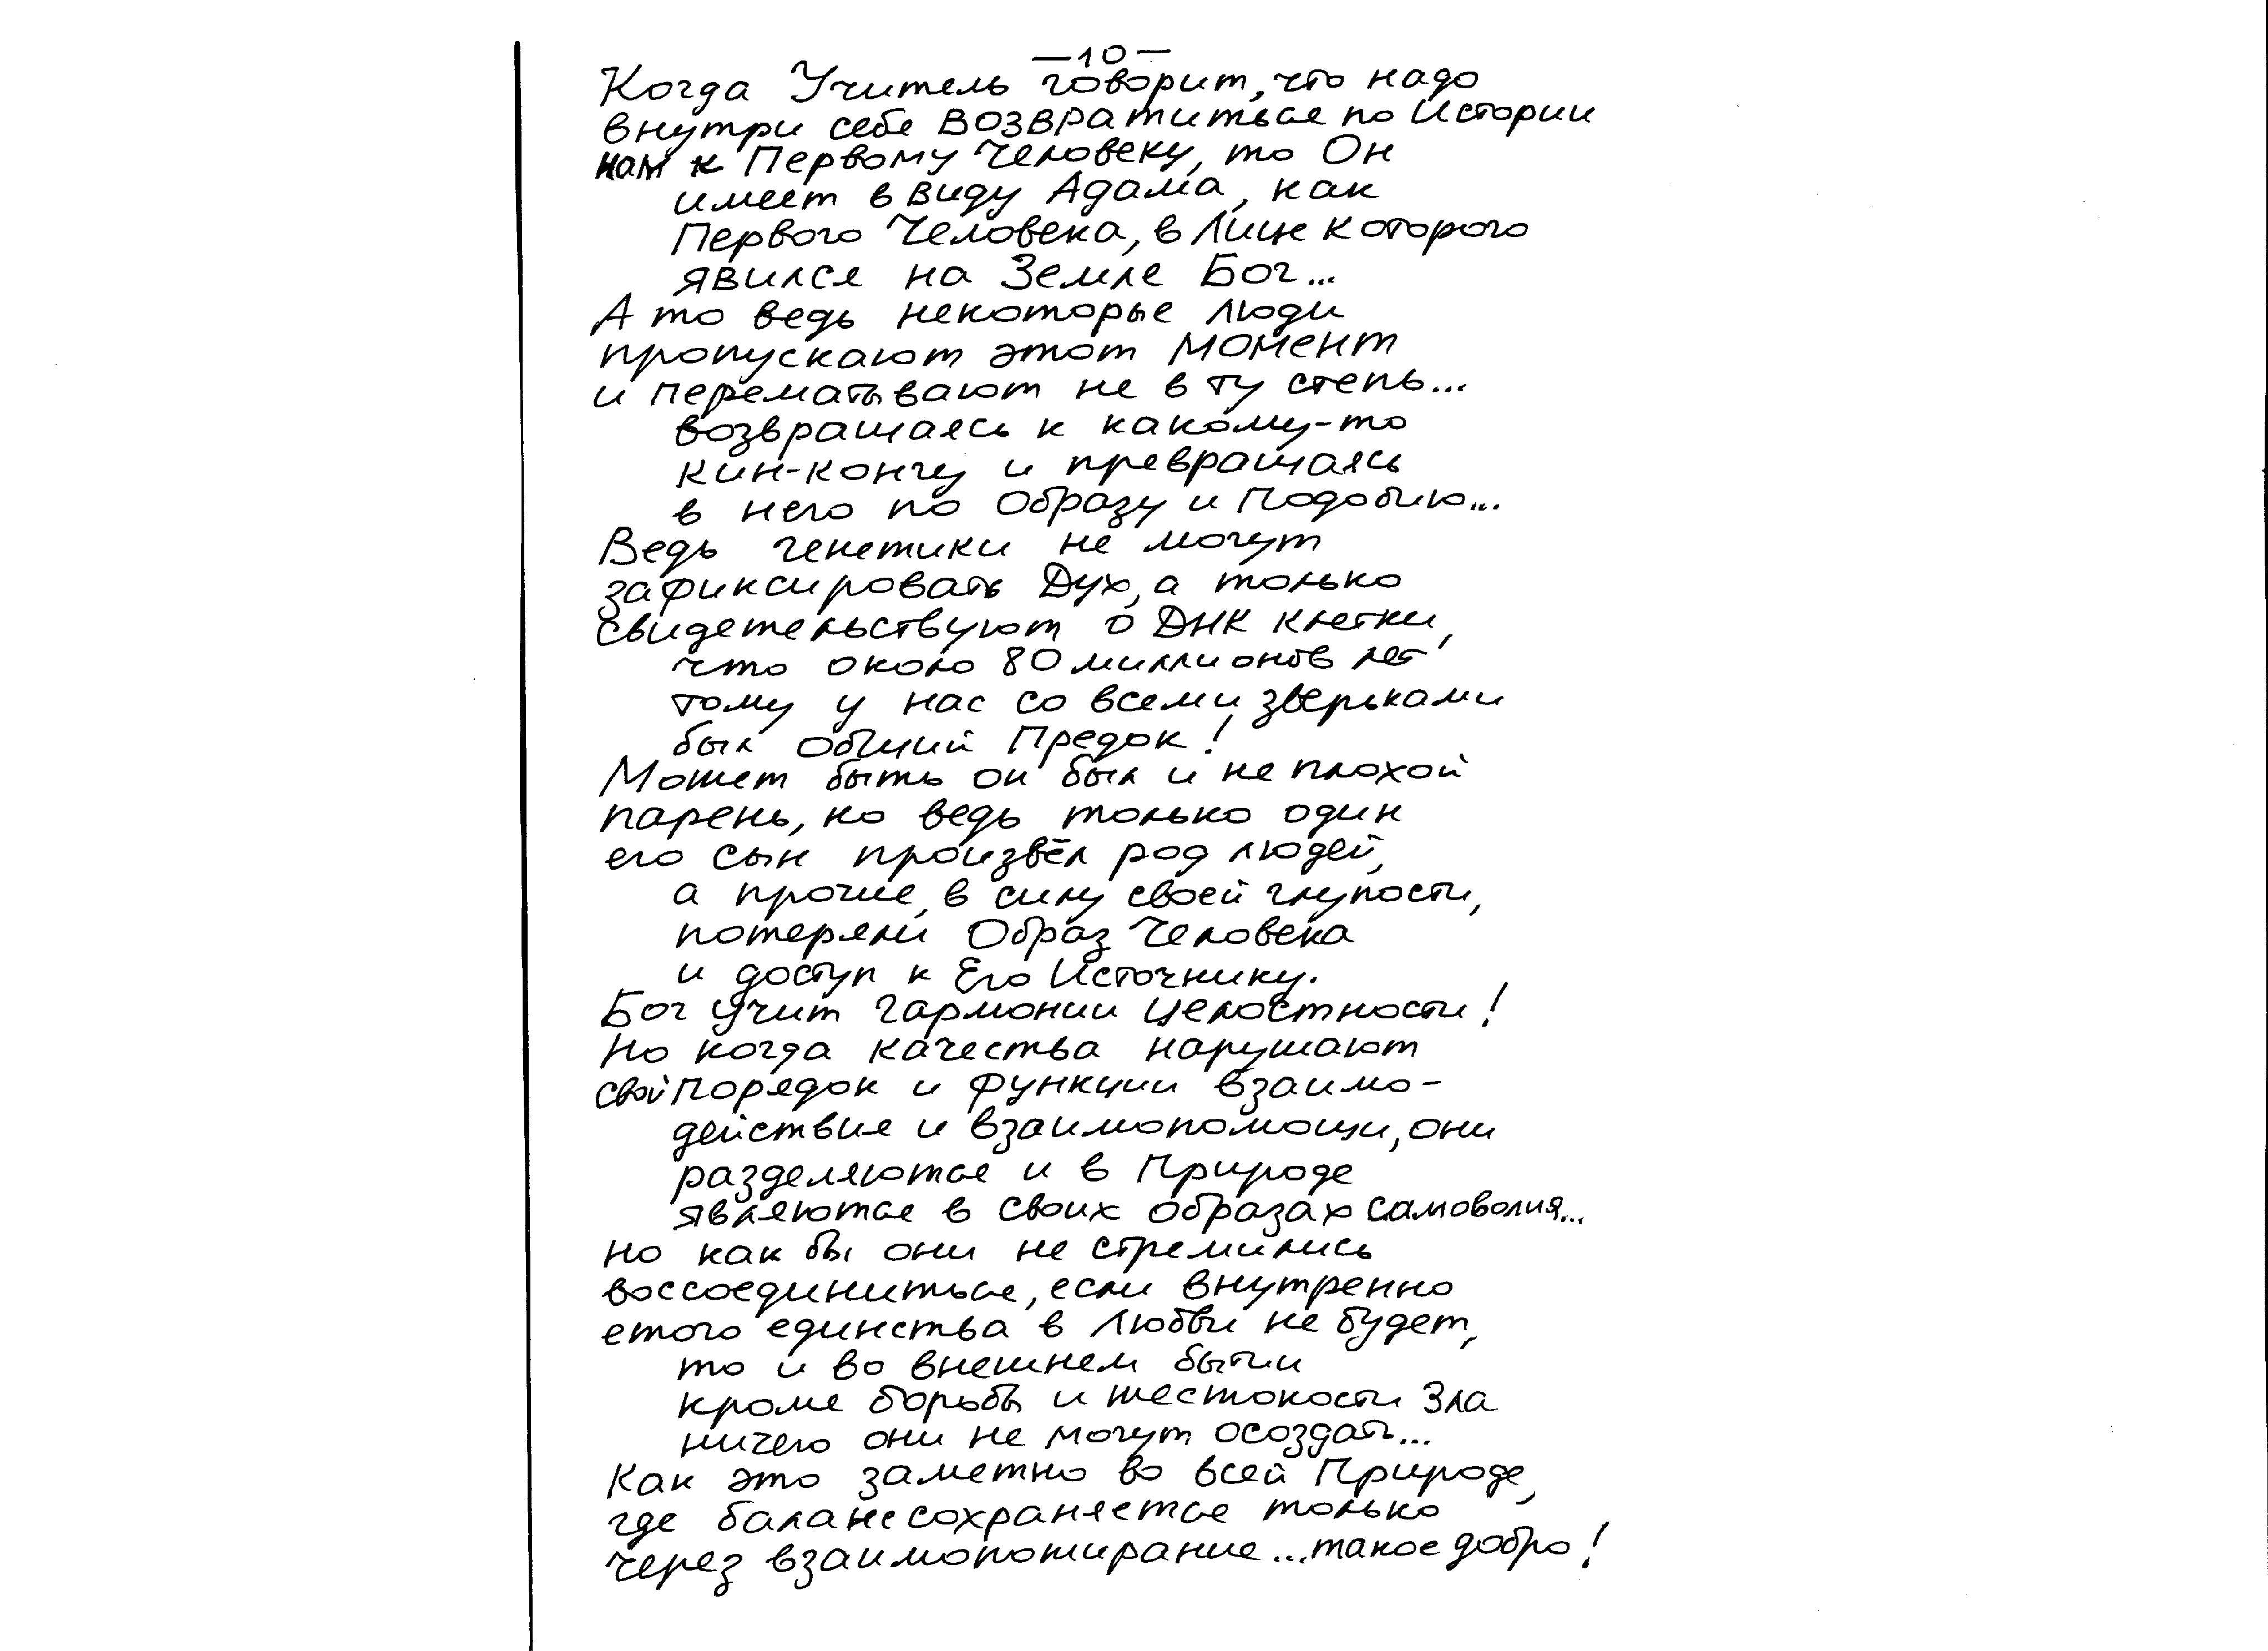 —10—
Когда Учитель говорит, что надо
внутри себя возвратиться по Истории
нам к Первому Человеку, то Он
имеет в виду Адама, как
Первого Человека, в Лице которого
явился на Земле Бог...
А то ведь некоторые люди
пропускают этот момент
и перематывают не в ту степь...
возвращаясь к какому-то
кин-конгу и превращаясь
в него по Образу и Подобию...
Ведь генетики не могут
зафиксировать Дух, а только
свидетельствуют о ДНК клетки,
что около 80 миллионов лет
тому у нас со всеми зверьками
был общий Предок!
Может быть он был и не плохой
парень, но ведь только один
его сын произвёл род людей,
а прочие, в силу своей глупости,
потеряли Образ Человека
и доступ к Его Источнику.
Бог учит гармонии целостности!
Но когда качества нарушают
свой порядок и функции взаимо-
действия и взаимопомощи, они
разделяются и в Природе
являются в своих образах самоволия...
Но как бы они не стремились
воссоединиться, если внутренно
етого единства в Любви не будет,
то и во внешнем бытии
кроме борьбы и жестокости Зла
ничего они не могут осоздать...
Как это заметно во всей Природе,
где баланс сохраняется только
через взаимопожирание... такое добро!